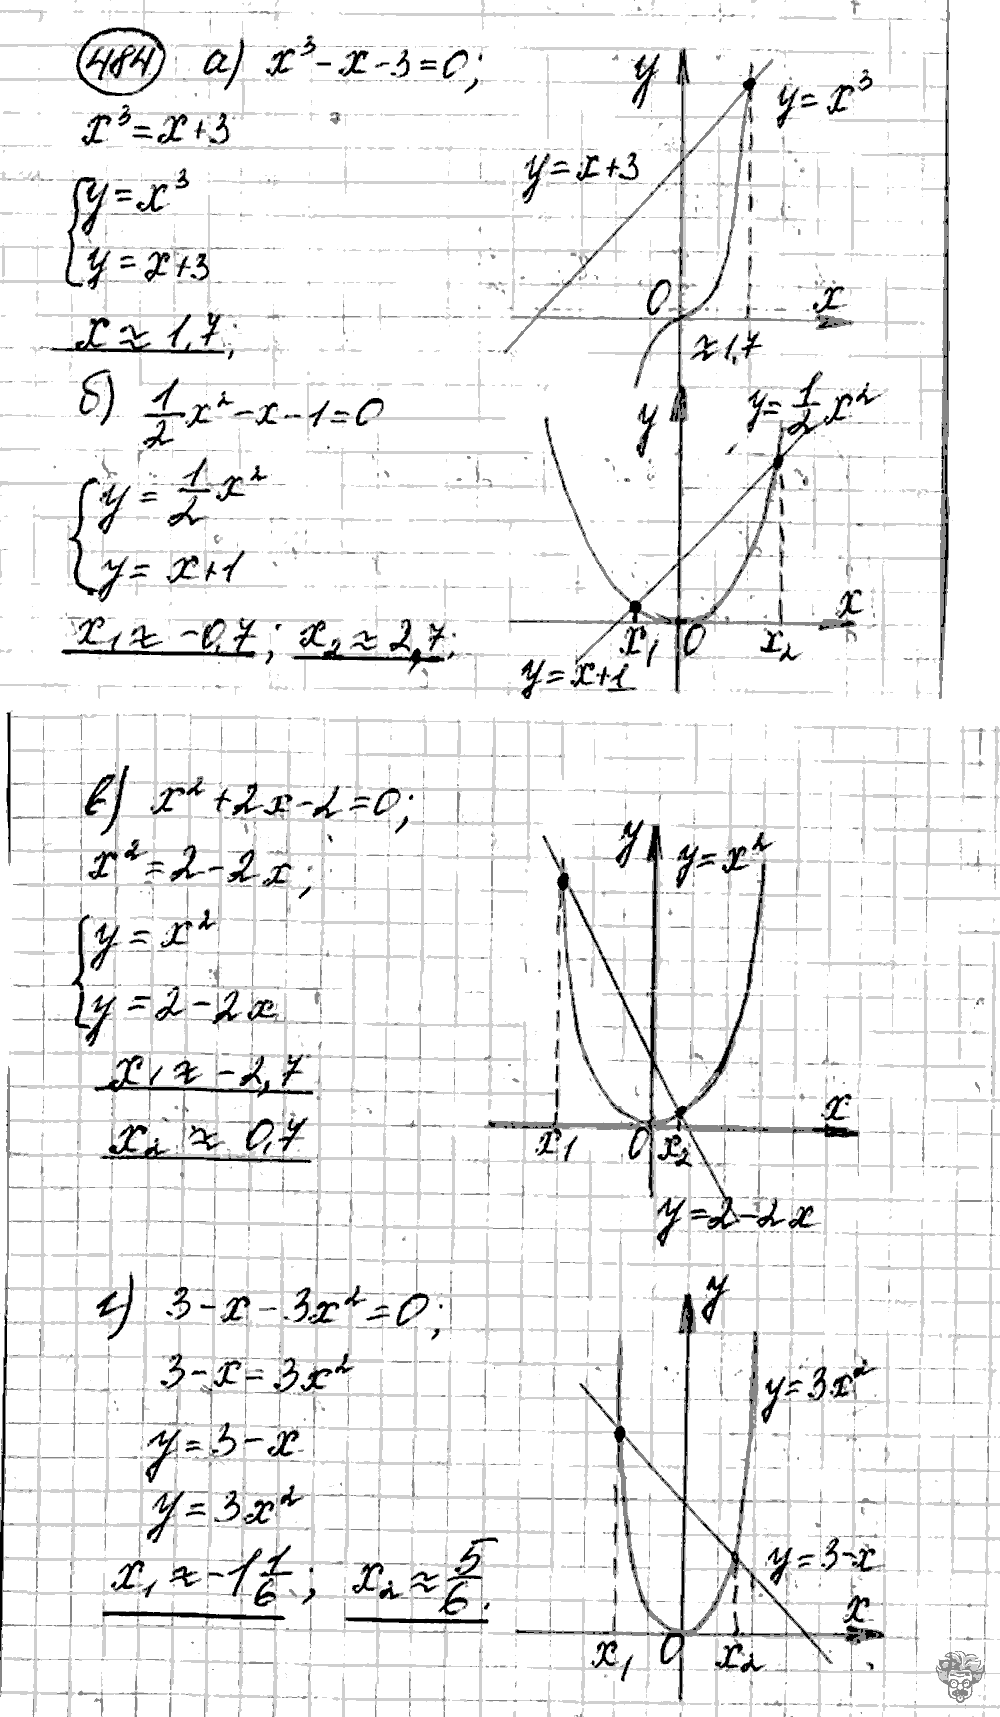 484 а) x³ - x - 3 = 0;
x³ = x + 3
{ y = x³
y = x + 3
x ≈ 1,7;
y
y = x³
y = x + 3
0
x
≈ 1,7
б) 1/2 x² - x - 1 = 0
{ y = 1/2 x²
y = x + 1
x₁ ≈ -0,7; x₂ ≈ 2,7;
y
y = 1/2 x²
x
x₁ 0 x₂
y = x + 1
в) x² + 2x - 2 = 0;
x² = 2 - 2x;
{ y = x²
y = 2 - 2x
x₁ ≈ -2,7
x₂ ≈ 0,7
y
y = x²
x
x₁ 0 x₂
y = 2 - 2x
г) 3 - x - 3x² = 0;
3 - x = 3x²
y = 3 - x
y = 3x²
x₁ ≈ -1 1/6; x₂ ≈ 5/6.
y
y = 3x²
y = 3 - x
x
x₁ 0 x₂